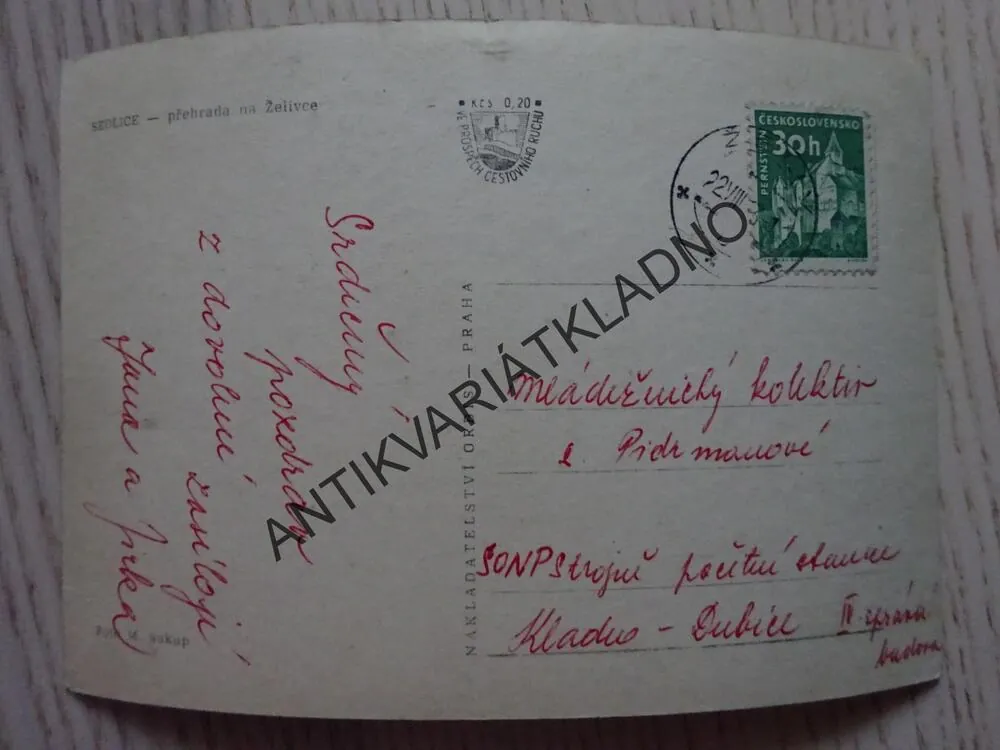 SEDLICE — přehrada na Želivce
KčS 0,20
VE PROSPĚCH CESTOVNÍHO RUCHU
ČESKOSLOVENSKO
30h
PERNŠTEJN
22.VIII
Srdečný pozdrav
z dovolené zasílají
Jana a Jirka
Foto M. Sukup
NAKLADATELSTVÍ ORBIS — PRAHA
Mládežnický kolektiv
s. Pidrmanové
SONP Strojně početní stanice
Kladno - Dubí
IV. správní
budova
ANTIKVARIÁTKLADNO